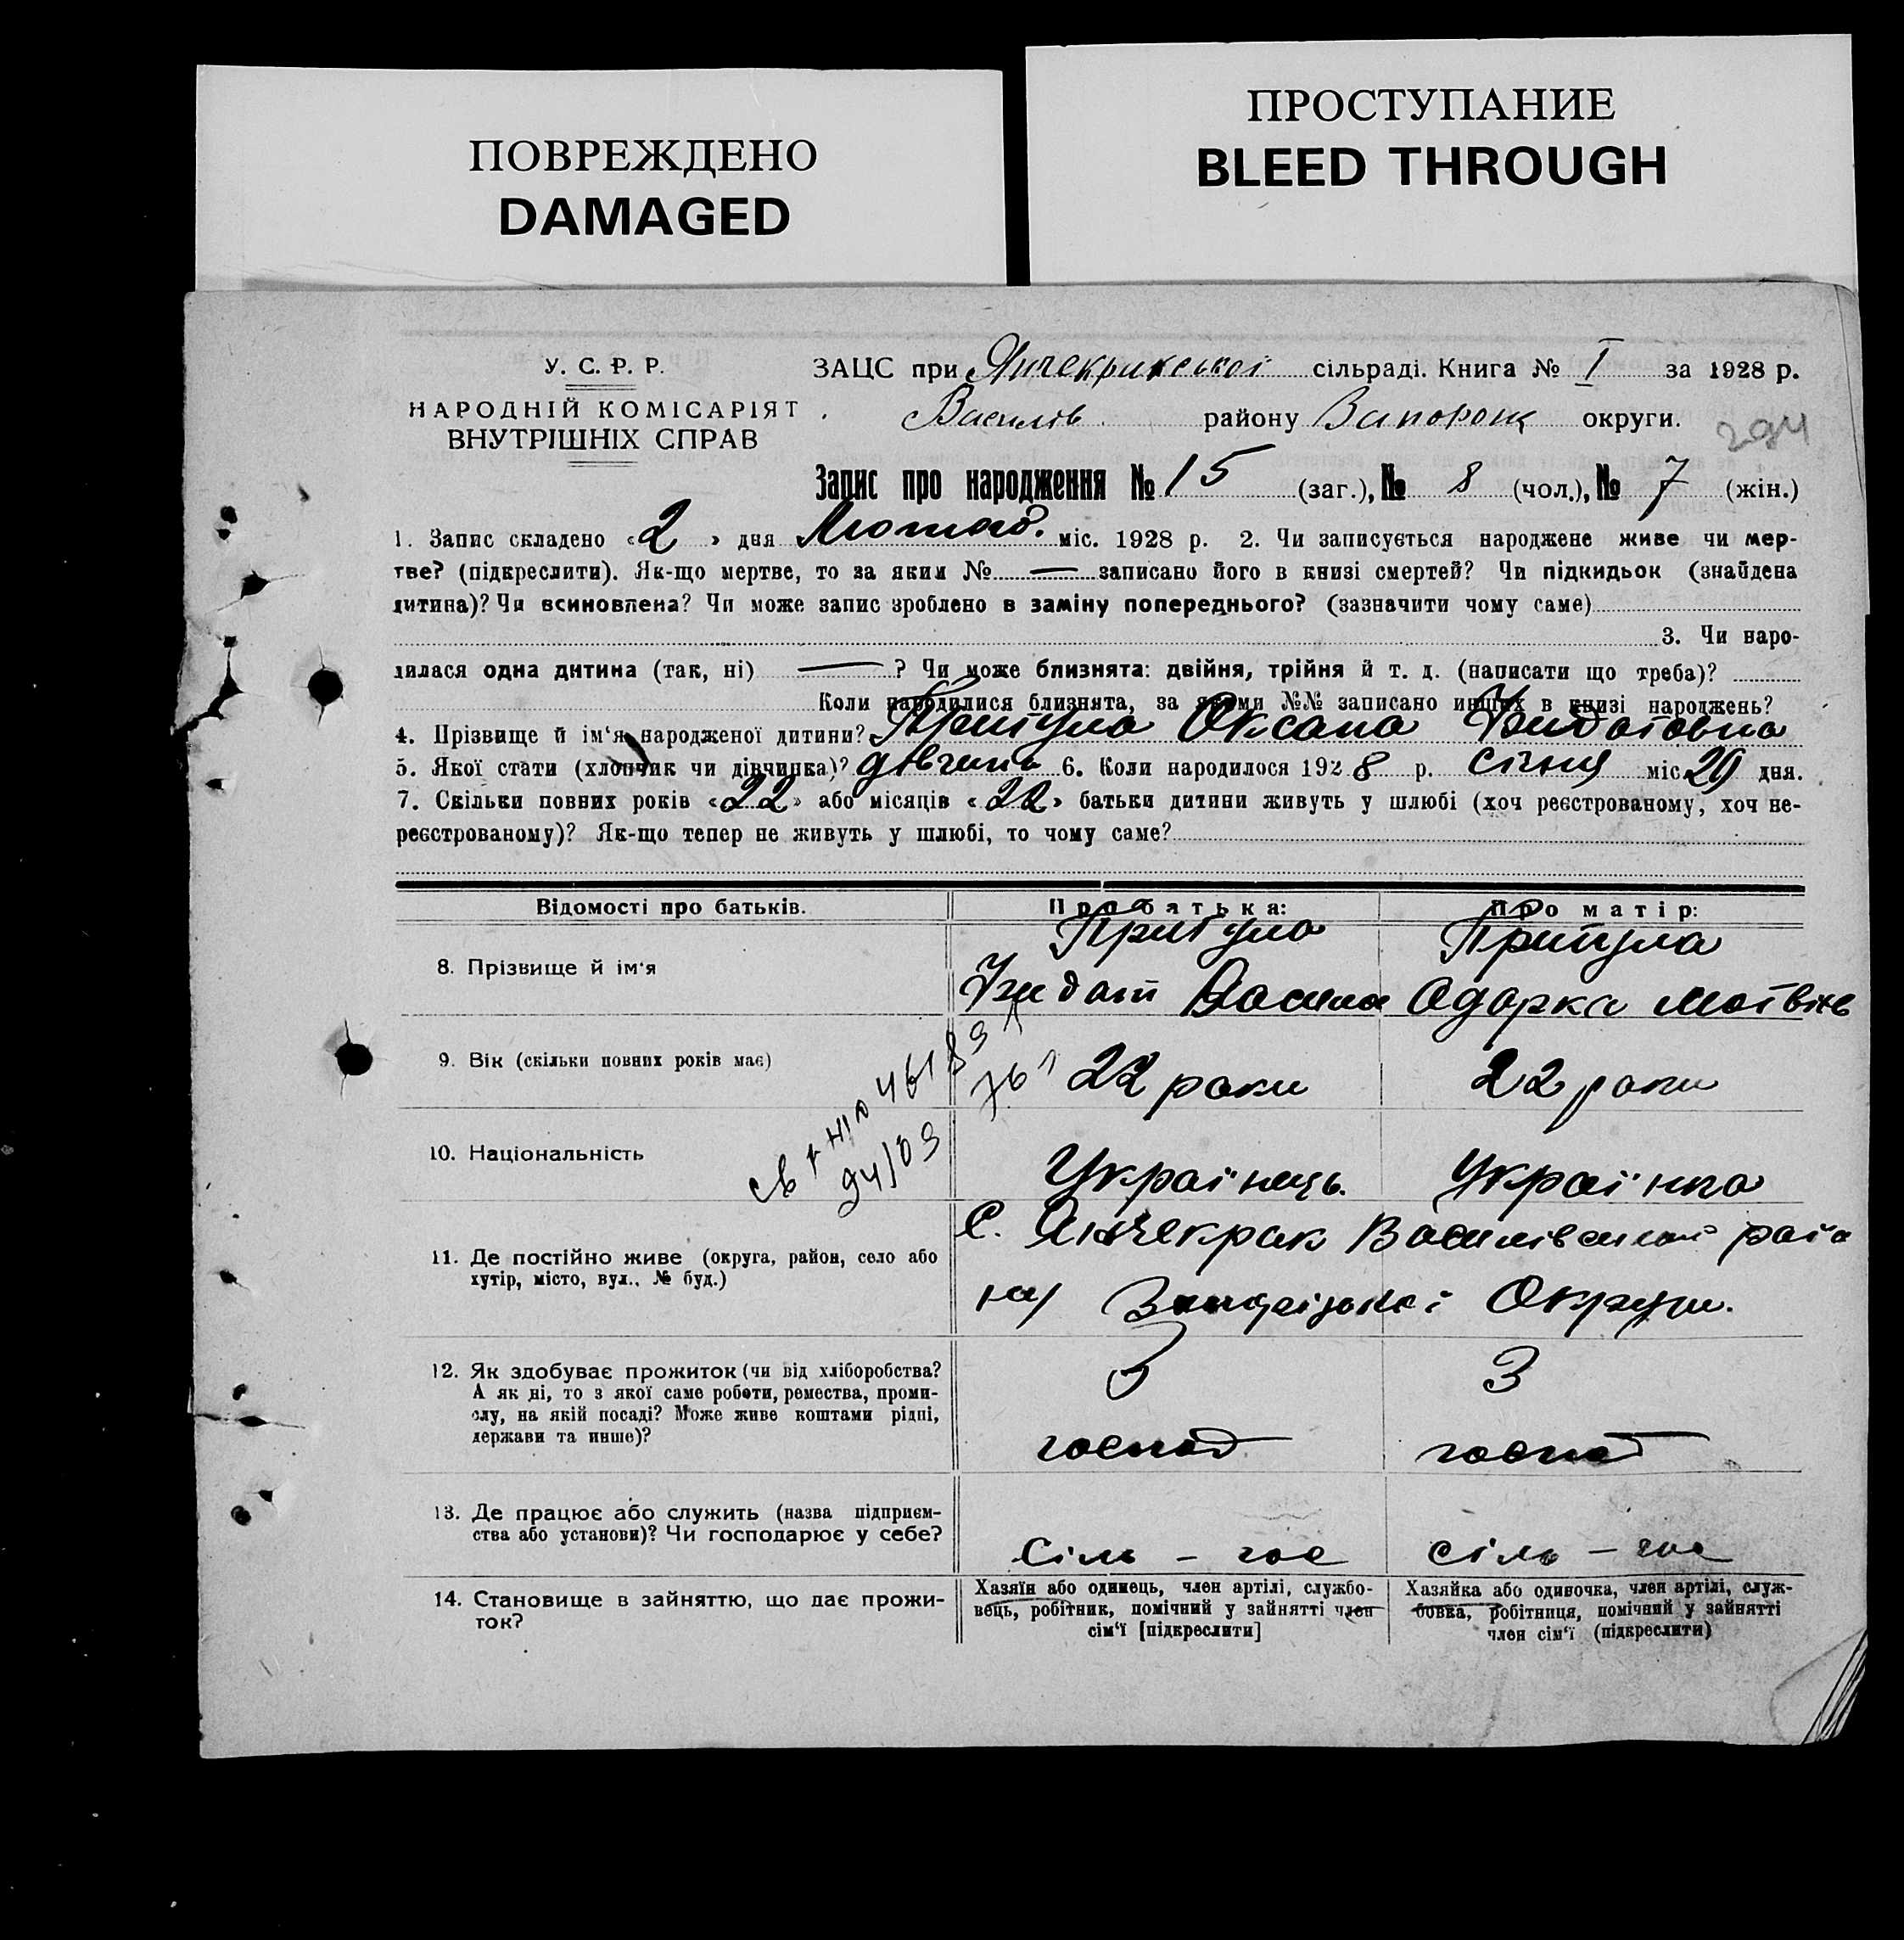 ПОВРЕЖДЕНО
DAMAGED
ПРОСТУПАНИЕ
BLEED THROUGH
У. С. Р. Р.
НАРОДНІЙ КОМІСАРІЯТ
ВНУТРІШНІХ СПРАВ
ЗАЦС при Янчекракської сільраді. Книга № I за 1928 р.
Василів району Запорож округи.
294
Запис про народження № 15 (заг.), № 8 (чол.), № 7 (жін.)
1. Запис складено «2» дня Лютого міс. 1928 р. 2. Чи записується народжене живе чи мер-
тве? (підкреслити). Як-що мертве, то за яким № — записано його в книзі смертей? Чи підкидьок (знайдена
дитина)? Чи всиновлена? Чи може запис зроблено в заміну попереднього? (зазначити чому саме)
3. Чи наро-
дилася одна дитина (так, ні) — ? Чи може близнята: двійня, трійня й т. д. (написати що треба)?
Коли народилися близнята, за якими №№ записано инших в книзі народжень?
4. Прізвище й ім‘я народженої дитини? Притула Оксана
5. Якої стати (хлопчик чи дівчинка)? дівчина 6. Коли народилося 1928 р. січня міс 29 дня.
7. Скільки повних років «22» або місяців «22» батьки дитини живуть у шлюбі (хоч реєстрованому, хоч не-
реєстрованому)? Як-що тепер не живуть у шлюбі, то чому саме?
Відомості про батьків. Про батька: Про матір:
8. Прізвище й ім‘я
Притула Притула
Василь Одарка
9. Вік (скільки повних років має)
22 роки 22 роки
10. Національність
Українець. Українка
11. Де постійно живе (округа, район, село або
хутір, місто, вул., № буд.)
С. Янчекрак Василівського райо
на Запорізької Округи.
12. Як здобуває прожиток (чи від хліборобства?
А як ні, то з якої саме роботи, ремества, проми-
слу, на якій посаді? Може живе коштами рідні,
держави та инше)?
З З
господ господ
13. Де працює або служить (назва підприєм-
ства або установи)? Чи господарює у себе?
Сіль – гос сіль – гос
14. Становище в зайняттю, що дає прожи-
ток?
Хазяїн або одинець, член артілі, службо-
вець, робітник, помічний у зайнятті член
сім‘ї [підкреслити]
Хазяйка або одиночка, член артілі, служ-
бовка, робітниця, помічний у зайнятті
член сім‘ї (підкреслити)